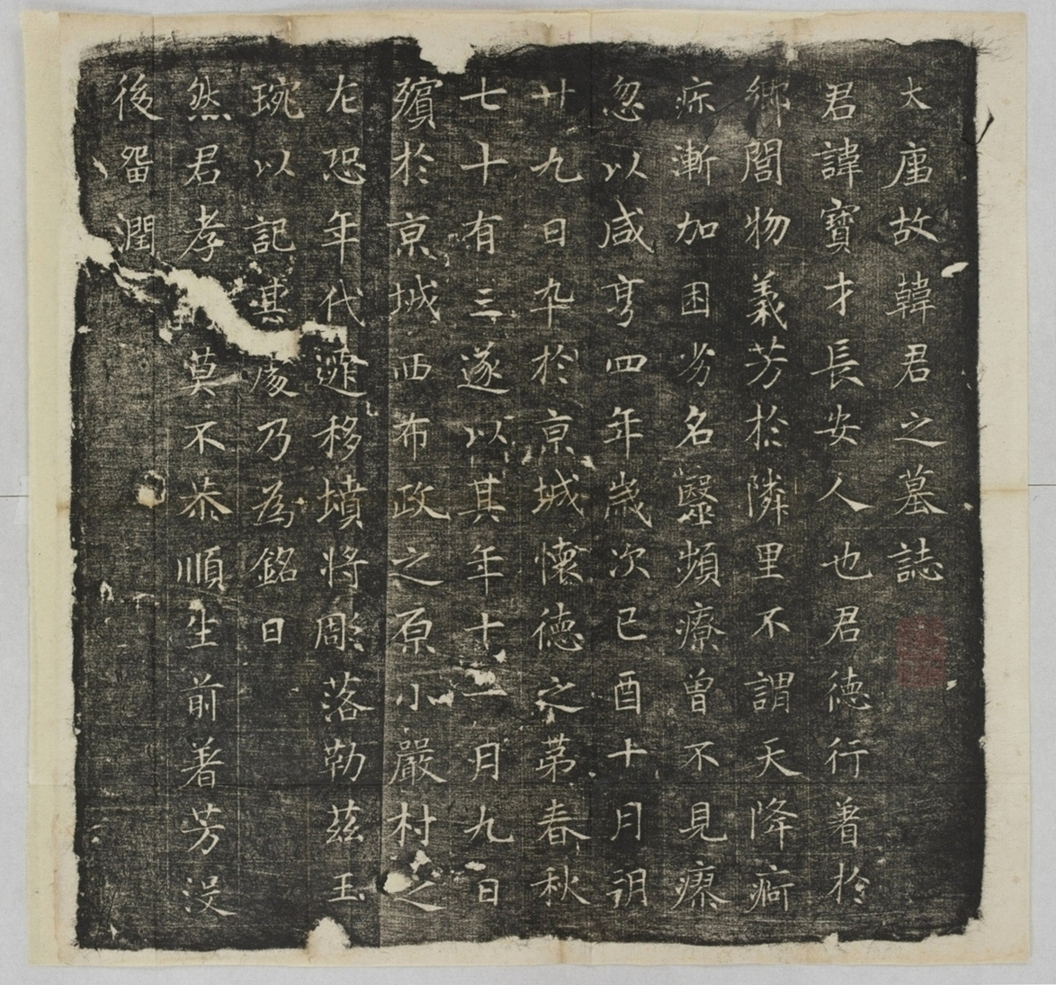 大唐故韓君之墓誌
君諱寶才長安人也君德行著於
鄉閭物義芳於隣里不謂天降痾
疾漸加困劣名醫頻療曾不見瘳
忽以咸亨四年歲次己酉十月朔
廿九日卒於京城懷德之第春秋
七十有三遂以其年十一月九日
殯於京城西布政之原小嚴村之
左恐年代遷移墳將彫落勒茲玉
琬以記其處乃為銘曰
然君孝莫不恭順生前著芳沒
後留潤